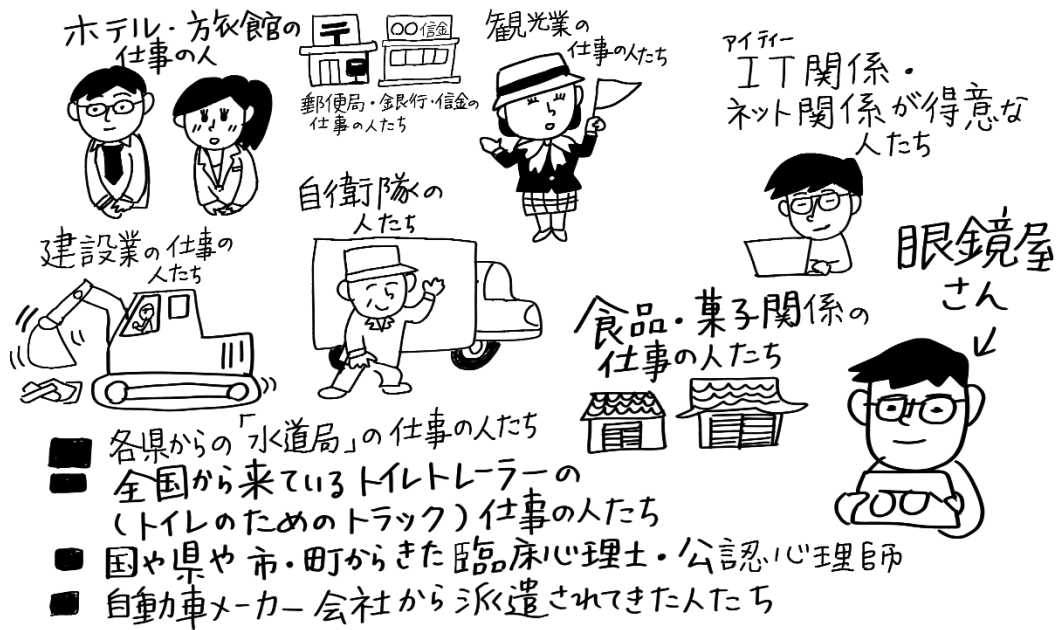 ホテル・旅館の
仕事の人
〒
〇〇信金
郵便局・銀行・信金の
仕事の人たち
観光業の
仕事の人たち
アイティー
IT関係・
ネット関係が得意な
人たち
建設業の仕事の
人たち
自衛隊の
人たち
食品・菓子関係の
仕事の人たち
眼鏡屋
さん
■ 各県からの「水道局」の仕事の人たち
■ 全国から来ているトイレトレーラーの
(トイレのためのトラック)仕事の人たち
■ 国や県や市・町からきた臨床心理士・公認心理師
■ 自動車メーカー会社から派遣されてきた人たち